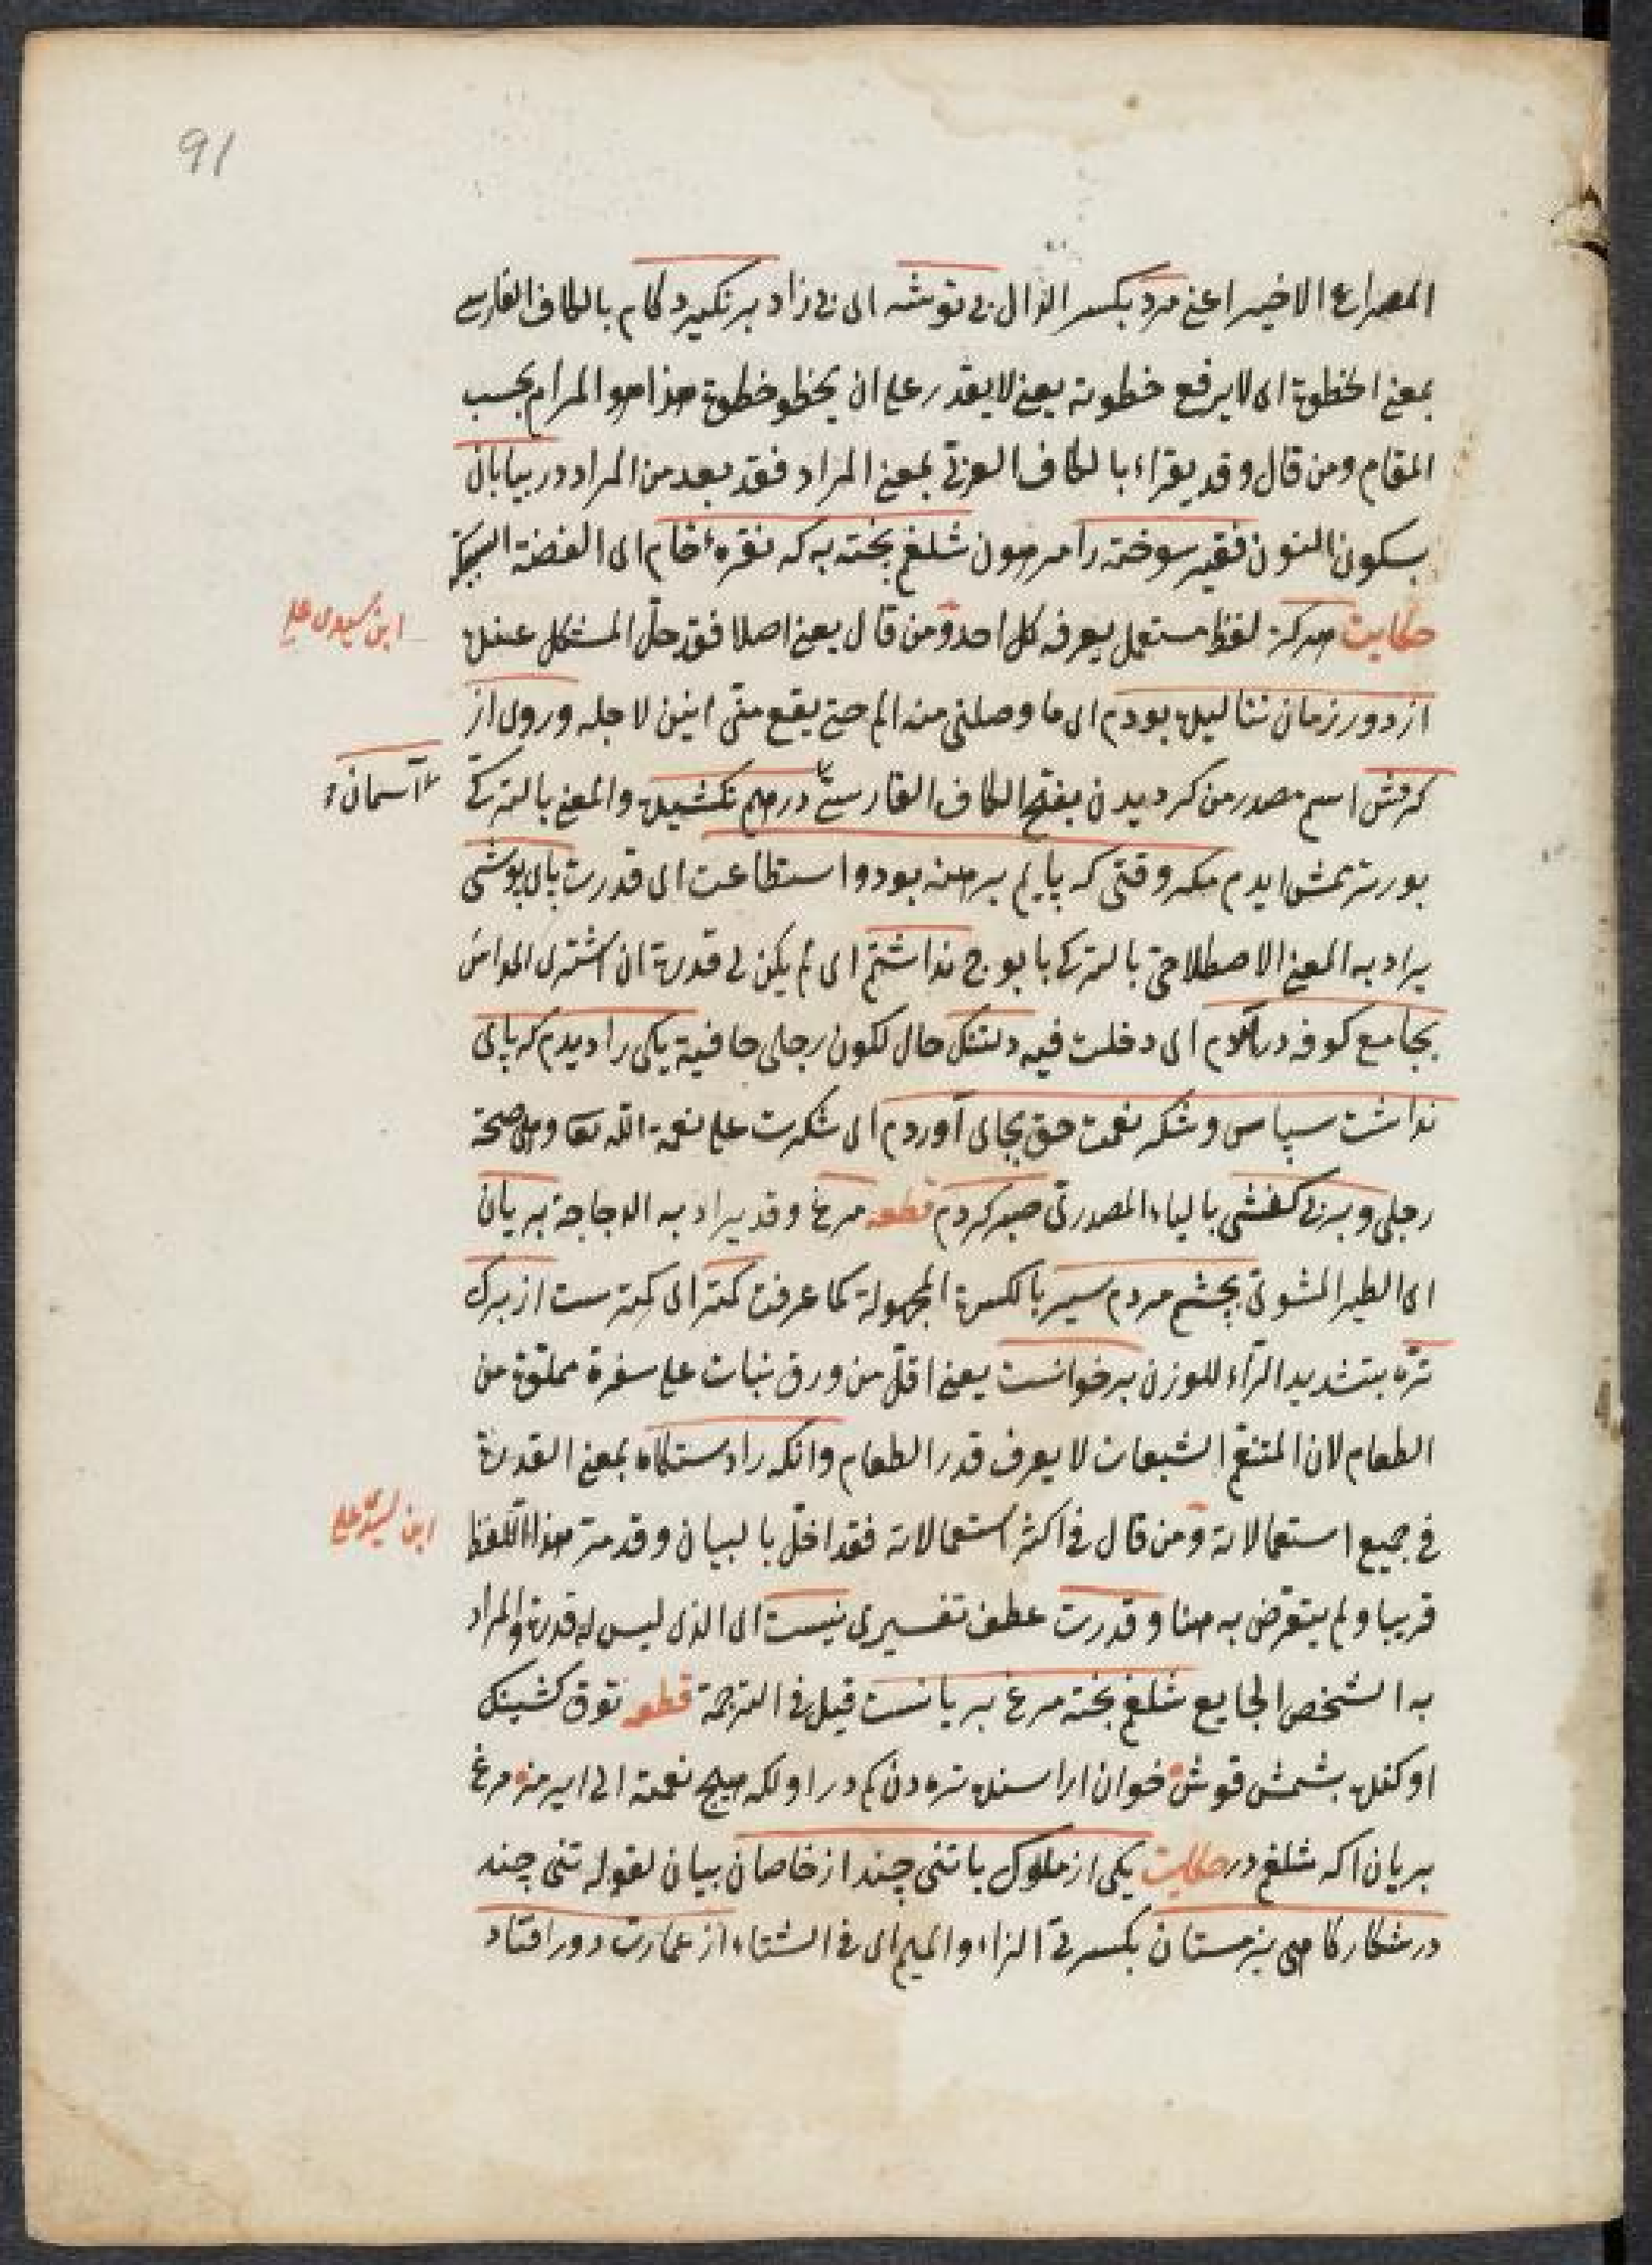 91
المصراع الاخير اعنى مرد بكسر الدال بى توشه اى بى زاد برنكيرد كام بالكاف الفارسى
بمعنى الخطوة اى لا يرفع خطوته يعنى لا يقدر على ان يخطو خطوة هذا هو المرام بحسب
المقام ومن قال وقد يقراء بالكاف العربى بمعنى المراد فقد بعد من المراد در بيابان
بسكون النون فقير سوخته را مرهون شلغم پخته به كه نقرهٔ خام اى الفضة
حكايت هركز لفظ مستعمل يعرفه كل احد ومن قال يعنى اصلا فقد حل المشكل عنده
ابن سيدى على
از دور زمان نناليده بودم اى ما وصلنى منه الم حتى يقع منى انين لاجله وروى از
كردش اسم مصدر من كرديدن بفتح الكاف الفارسى درهم نكشيده والمعنى بالتركى
آسمان
بورترمش ايدم مكر وقتى كه پايم برهنه بود و استطاعت اى قدرت پاى پوشى
يراد به المعنى الاصطلاحى بالتركى بابوج نداشتم اى لم يكن لى قدرة ان اشترى المداس
بجامع كوفه در آمدم اى دخلت فيه دلتنك حال لكون رجلى حافية يكى را ديدم كه پاى
نداشت سپاس وشكر نعمت حق بجاى آوردم اى شكرت على نعمة الله تعا وهى صحة
رجلى وبر بى كفشى بالياء المصدرى صبر كردم قطعه مرغ وقد يراد به الدجاجة بريان
اى الطير المشوى بچشم مردم سير بالكسرة المجهولة كما عرفت كمتر اى كمترست از برك
تره بتشديد الراء للوزن بر خوانست يعنى اقل من ورق نبات على سفرة مملوة من
الطعام لان المتنعم الشبعان لا يعرف قدر الطعام وانكه را دستكاه بمعنى القدرة
فى جميع استعمالاته ومن قال فى اكثر استعمالاته فقد اخل بالبيان وقد مر هذا اللفظ
ابن سيد على
قريبا ولم يتعرض به هنا وقدرت عطف تفسيرى نيست اى الذى ليس له قدرة والمراد
به الشخص الجايع شلغم پخته مرغ بريانست قيل فى الترجمة قطعه توق كشينك
اوكنده بشمش قوش خوان اراسنده تره دن كم در اولكه هيچ نعمته الى ايرمز مرغ
بريان اكه شلغم در حكايت يكى از ملوك با تنى چند از خاصان بيان لقوله تنى چند
در شكاركاهى بزمستان بكسرتى الزاء والميم اى فى الشتاء از عمارت دور افتاد